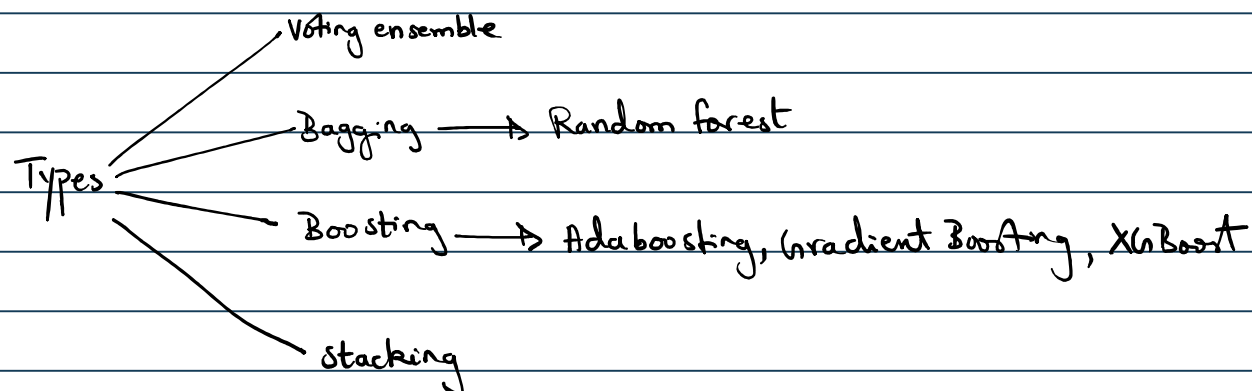 Voting ensemble
Bagging → Random forest
Types
Boosting → Adaboosting, Gradient Boosting, XGBoost
stacking